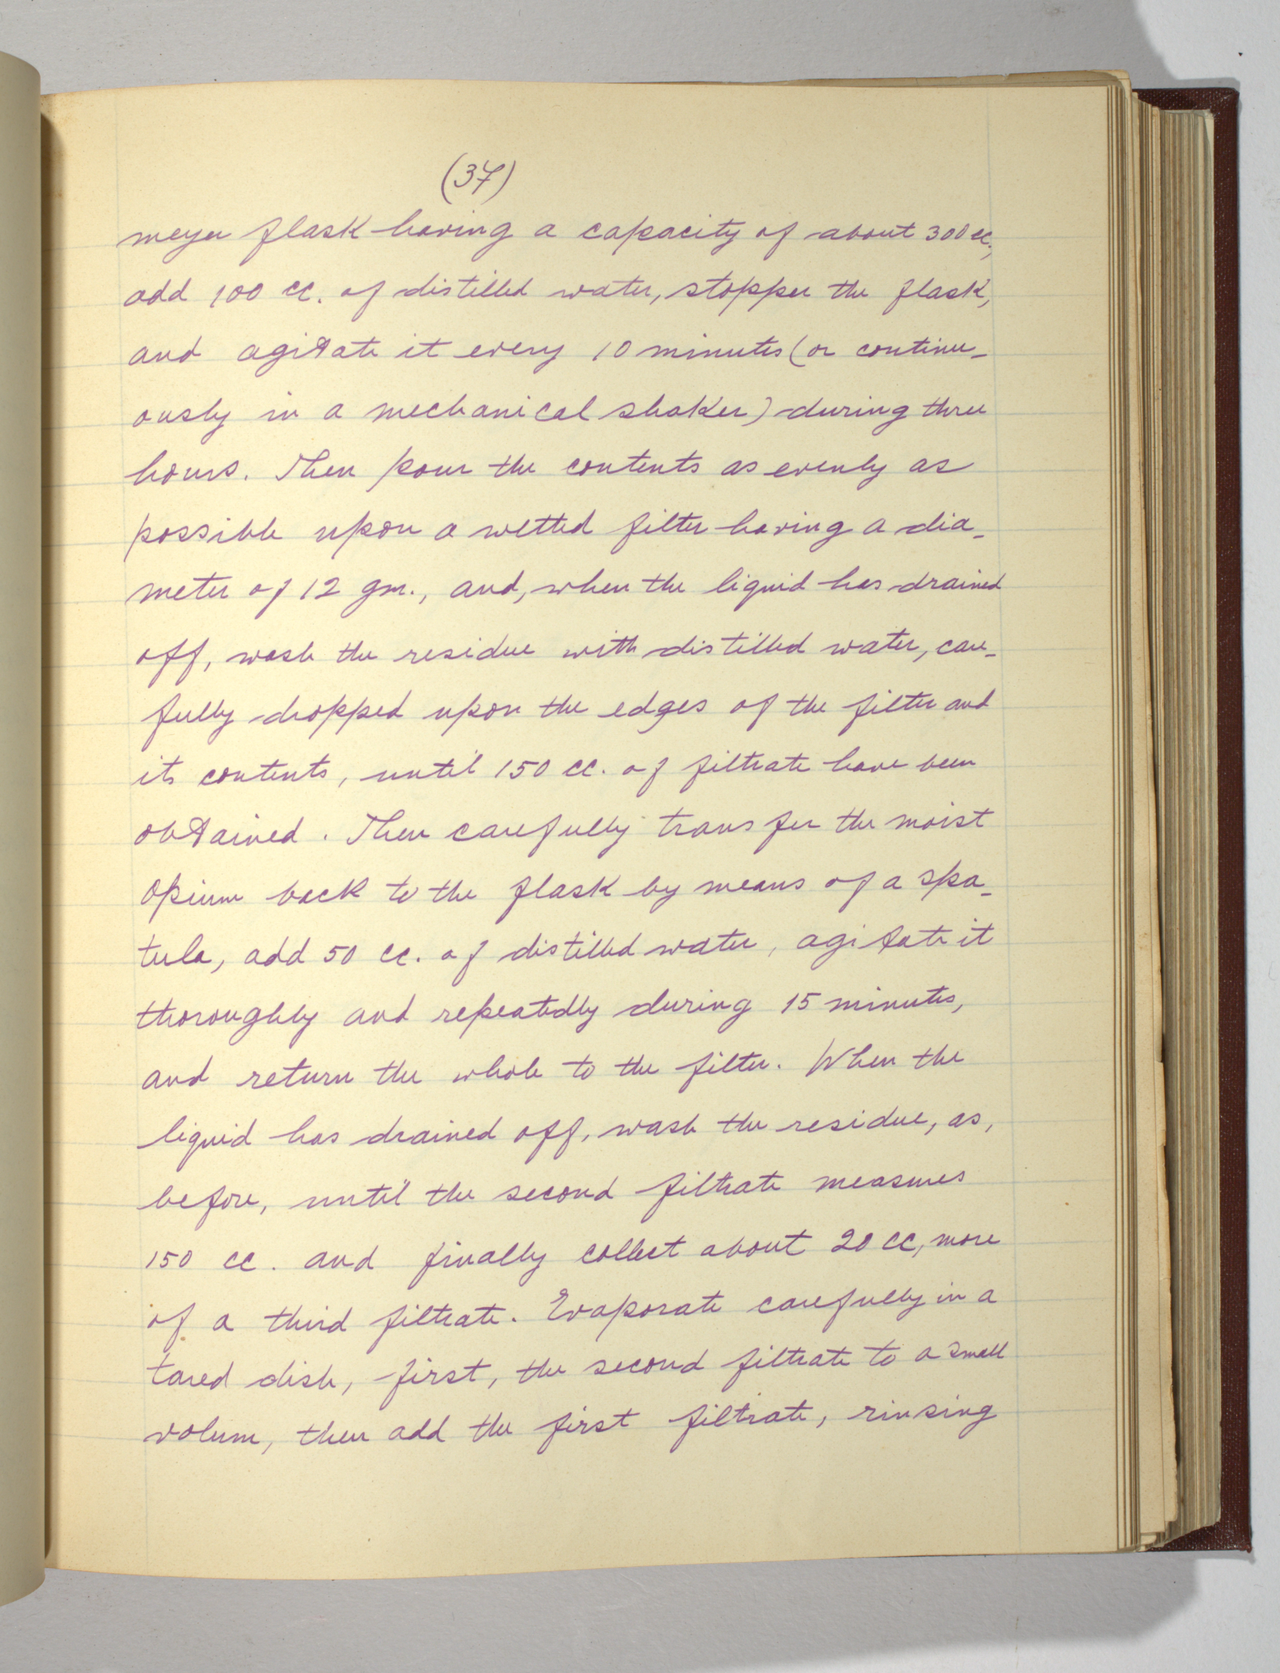 (37)
meyer flask having a capacity of about 300 cc.,
add 100 cc. of distilled water, stopper the flask,
and agitate it every 10 minutes (or continu-
ously in a mechanical shaker) during three
hours. Then pour the contents as evenly as
possible upon a wetted filter having a dia-
meter of 12 gm., and, when the liquid has drained
off, wash the residue with distilled water, care-
fully dropped upon the edges of the filter and
its contents, until 150 cc. of filtrate have been
obtained. Then carefully transfer the moist
opium back to the flask by means of a spa-
tula, add 50 cc. of distilled water, agitate it
thoroughly and repeatedly during 15 minutes,
and return the whole to the filter. When the
liquid has drained off, wash the residue, as,
before, until the second filtrate measures
150 cc. and finally collect about 20 cc, more
of a third filtrate. Evaporate carefully in a
tared dish, first, the second filtrate to a small
volum, then add the first filtrate, rinsing